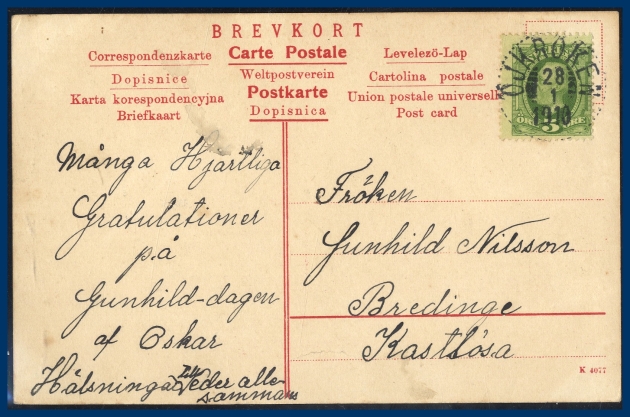 BREVKORT
Correspondenzkarte Carte Postale Levelezö-Lap
Dopisnice Weltpostverein Cartolina postale
Karta korespondencyjna Postkarte Union postale universelle
Briefkaart Dopisnica Post card
28
1
1910
5
Många Hjärtliga
Gratulationer
på
Gunhild-dagen
af Oskar
Hälsningar till Eder alle
sammans
Fröken
Gunhild Nilsson
Bredinge
Kastlösa
K 4077